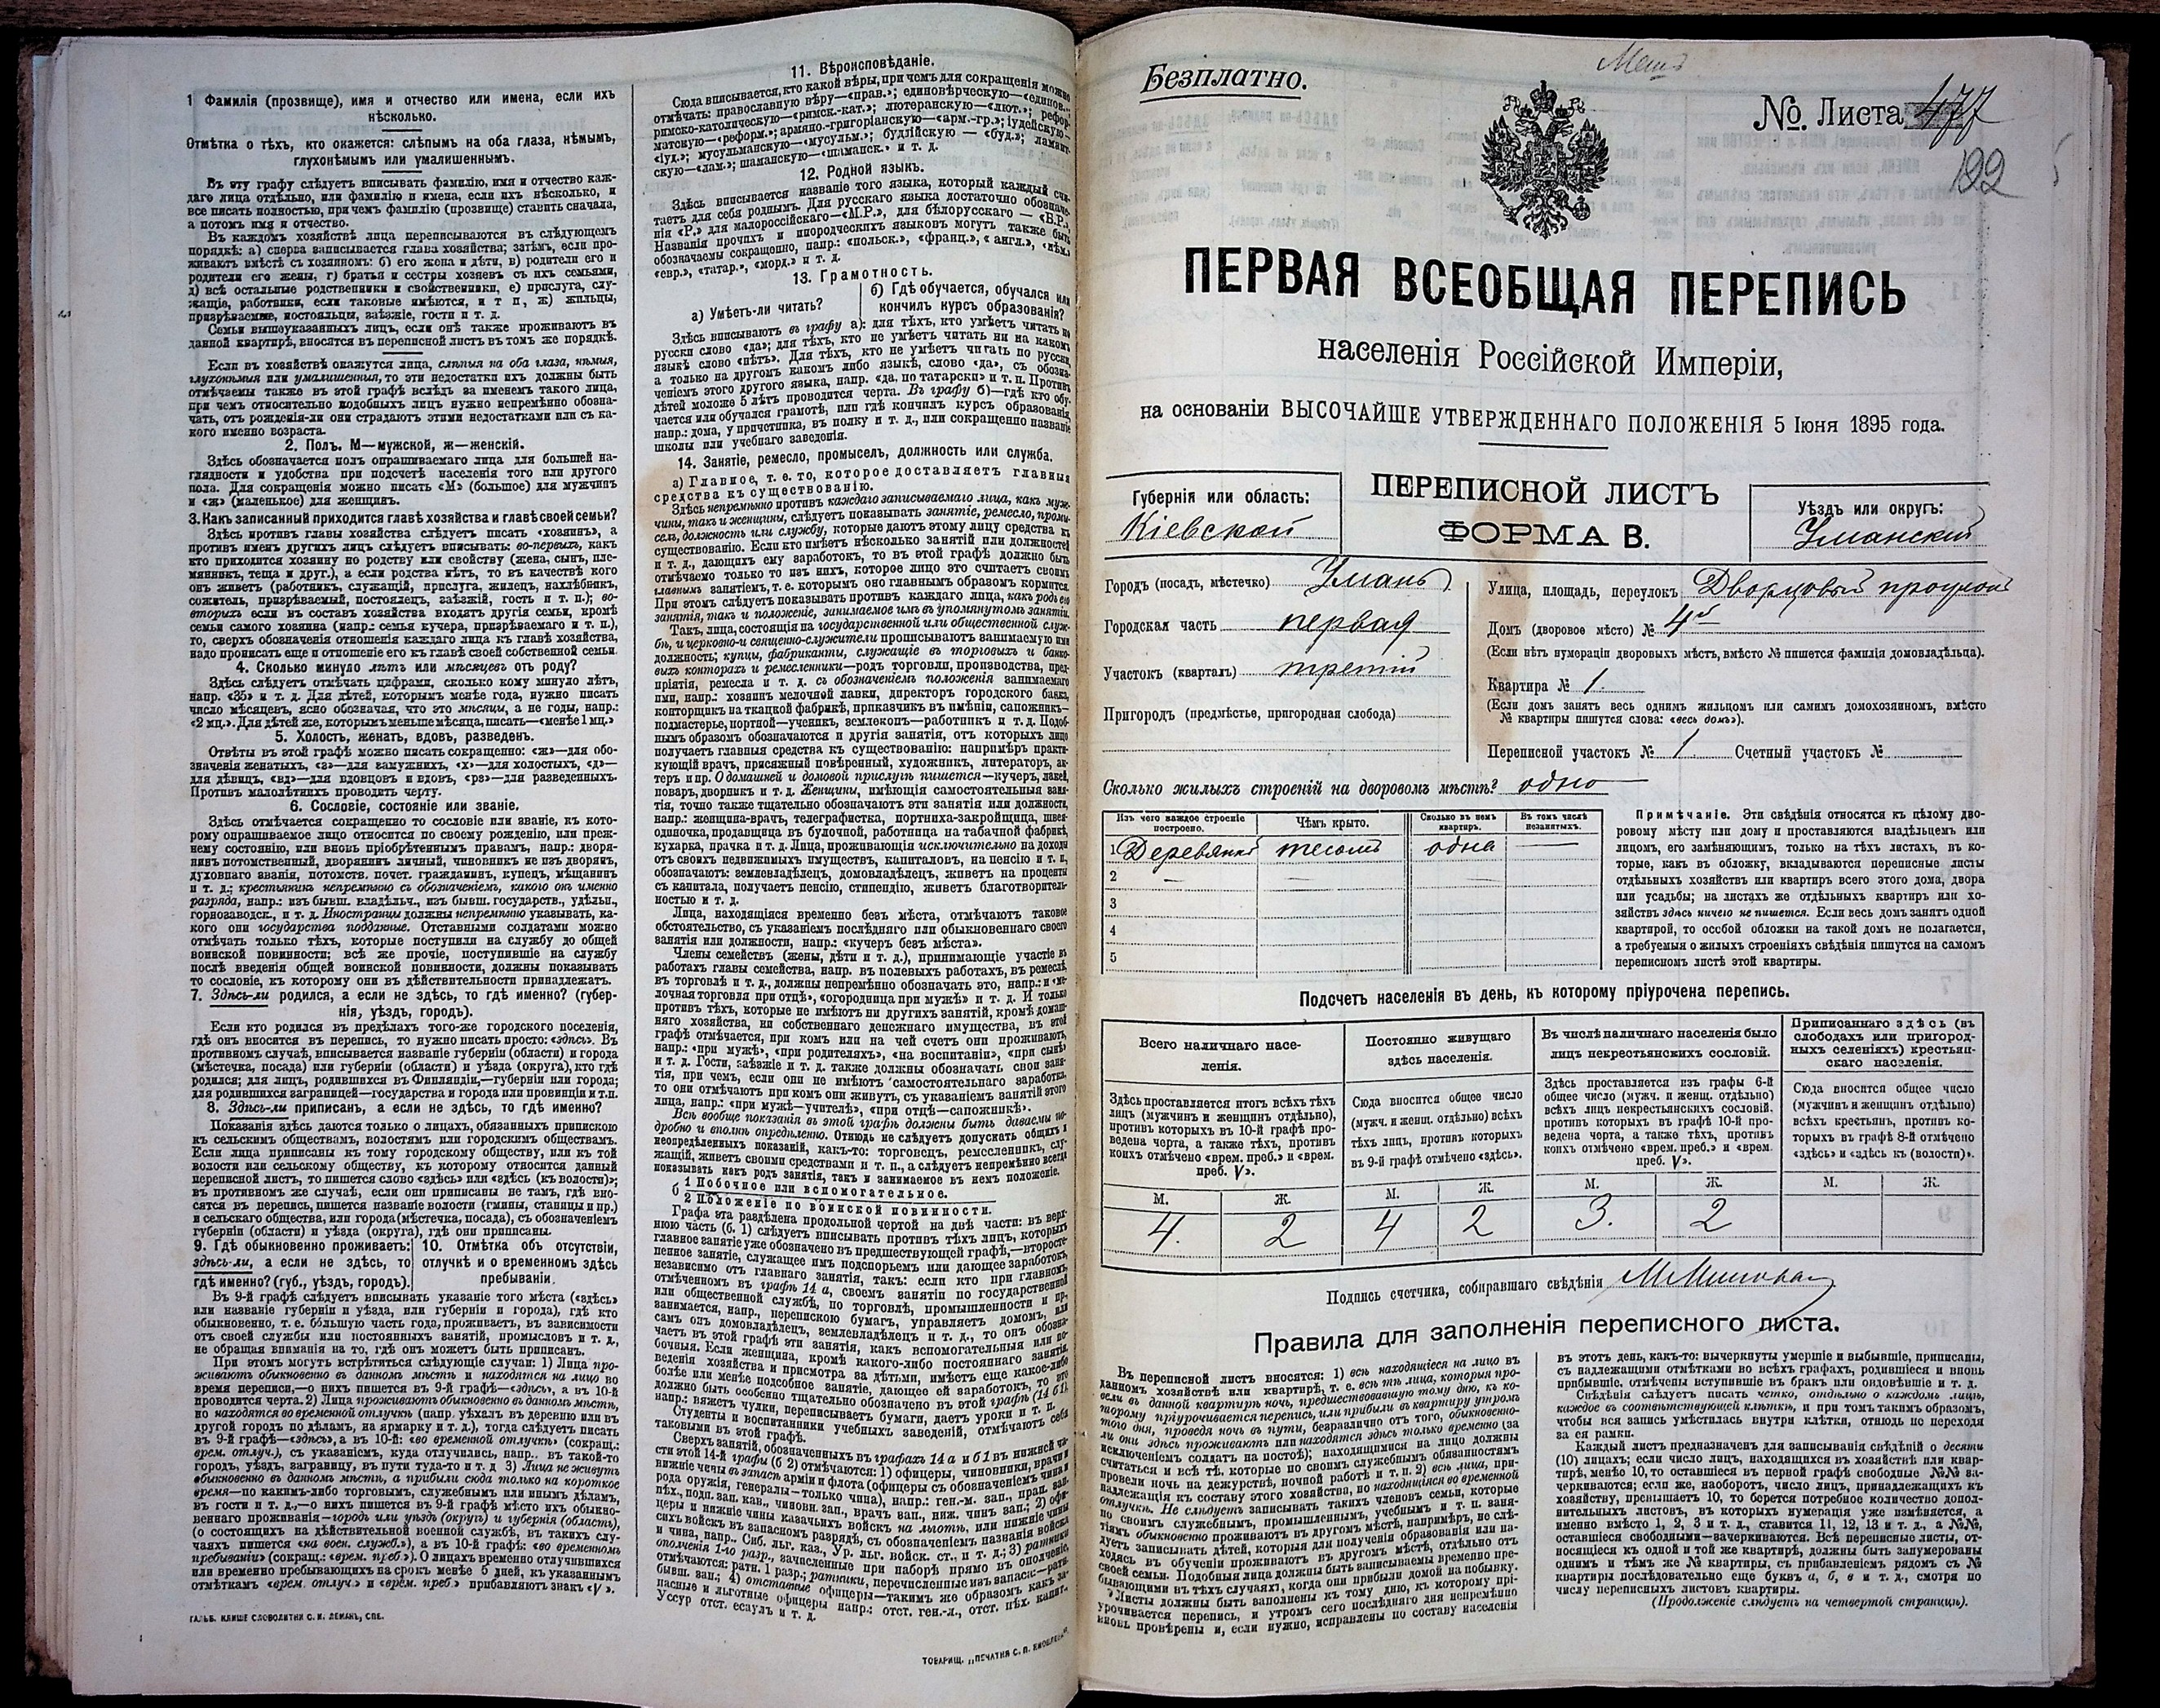 1 Фамилія (прозвище), имя и отчество или имена, если ихъ
нѣсколько.
Отмѣтка о тѣхъ, кто окажется: слѣпымъ на оба глаза, нѣмымъ,
глухонѣмымъ или умалишеннымъ.
Въ эту графу слѣдуетъ вписывать фамилію, имя и отчество каж-
даго лица отдѣльно, или фамилію и имена, если ихъ нѣсколько, и
все писать полностью, при чемъ фамилію (прозвище) ставить сначала,
а потомъ имя и отчество.
Въ каждомъ хозяйствѣ лица переписываются въ слѣдующемъ
порядкѣ: а) сперва записывается глава хозяйства; затѣмъ, если про-
живаютъ вмѣстѣ съ хозяиномъ: б) его жена и дѣти, в) родители его и
родители его жены, г) братья и сестры хозяевъ съ ихъ семьями,
д) всѣ остальные родственники и свойственники, е) прислуга, слу-
жащіе, работники, если таковые имѣются, и т п, ж) жильцы,
призрѣваемые, постояльцы, заѣзжіе, гости и т. д.
Семьи вышеуказанныхъ лицъ, если онѣ также проживаютъ въ
данной квартирѣ, вносятся въ переписной листъ въ томъ же порядкѣ.
Если въ хозяйствѣ окажутся лица, слѣпыя на оба глаза, нѣмыя,
глухонѣмыя или умалишенныя, то эти недостатки ихъ должны быть
отмѣчаемы также въ этой графѣ вслѣдъ за именемъ такого лица,
при чемъ относительно подобныхъ лицъ нужно непремѣнно обозна-
чать, отъ рожденія-ли они страдаютъ этими недостатками или съ ка-
кого именно возраста.
2. Полъ. М—мужской, ж—женскій.
Здѣсь обозначается полъ опрашиваемаго лица для большей на-
глядности и удобства при подсчетѣ населенія того или другого
пола. Для сокращенія можно писать «М» (большое) для мужчинъ
и «ж» (маленькое) для женщинъ.
3. Какъ записанный приходится главѣ хозяйства и главѣ своей семьи?
Здѣсь противъ главы хозяйства слѣдуетъ писать «хозяинъ», а
противъ именъ другихъ лицъ слѣдуетъ вписывать: во-первыхъ, какъ
кто приходится хозяину по родству или свойству (жена, сынъ, пле-
мянникъ, теща и друг.), а если родства нѣтъ, то въ качествѣ кого
онъ живетъ (работникъ, служащій, прислуга, жилецъ, нахлѣбникъ,
сожитель, призрѣваемый, постоялецъ, заѣзжій, гость и т. п.); во-
вторыхъ если въ составъ хозяйства входятъ другія семьи, кромѣ
семьи самого хозяина (напр.: семья кучера, призрѣваемаго и т. п.),
то, сверхъ обозначенія отношенія каждаго лица къ главѣ хозяйства,
надо прописать еще и отношеніе его къ главѣ своей собственной семьи.
4. Сколько минуло лѣтъ или мѣсяцевъ отъ роду?
Здѣсь слѣдуетъ отмѣчать цифрами, сколько кому минуло лѣтъ,
напр. «35» и т. д. Для дѣтей, которымъ менѣе года, нужно писать
число мѣсяцевъ, ясно обозначая, что это мѣсяцы, а не годы, напр.:
«2 мц.». Для дѣтей же, которымъ меньше мѣсяца, писать—«менѣе 1 мц.»
5. Холостъ, женатъ, вдовъ, разведенъ.
Отвѣты въ этой графѣ можно писать сокращенно: «ж»—для обо-
значенія женатыхъ, «з»—для замужнихъ, «х»—для холостыхъ, «д»—
для дѣвицъ, «вд»—для вдовцовъ и вдовъ, «рз»—для разведенныхъ.
Противъ малолѣтнихъ проводить черту.
6. Сословіе, состояніе или званіе.
Здѣсь отмѣчается сокращенно то сословіе или званіе, къ кото-
рому опрашиваемое лицо относится по своему рожденію, или преж-
нему состоянію, или вновь пріобрѣтеннымъ правамъ, напр.: дворя-
нинъ потомственный, дворянинъ личный, чиновникъ не изъ дворянъ,
духовнаго званія, потомств. почет. гражданинъ, купецъ, мѣщанинъ
и т. д.; крестьянинъ непремѣнно съ обозначеніемъ, какого онъ именно
разряда, напр.: изъ бывш. владѣльч., изъ бывш. государств., удѣльн.,
горнозаводск., и т. д. Иностранцы должны непремѣнно указывать, ка-
кого они государства подданные. Отставными солдатами можно
отмѣчать только тѣхъ, которые поступили на службу до общей
воинской повинности; всѣ же прочіе, поступившіе на службу
послѣ введенія общей воинской повинности, должны показывать
то сословіе, къ которому они въ дѣйствительности принадлежатъ.
7. Здѣсь-ли родился, а если не здѣсь, то гдѣ именно? (губер-
нія, уѣздъ, городъ).
Если кто родился въ предѣлахъ того-же городского поселенія,
гдѣ онъ вносится въ перепись, то нужно писать просто: «здѣсь». Въ
противномъ случаѣ, вписывается названіе губерніи (области) и города
(мѣстечка, посада) или губерніи (области) и уѣзда (округа), кто гдѣ
родился; для лицъ, родившихся въ Финляндіи,—губерніи или города;
для родившихся заграницей—государства и города или провинціи и т.п.
8. Здѣсь-ли приписанъ, а если не здѣсь, то гдѣ именно?
Показанія здѣсь даются только о лицахъ, обязанныхъ припискою
къ сельскимъ обществамъ, волостямъ или городскимъ обществамъ.
Если лица приписаны къ тому городскому обществу, или къ той
волости или сельскому обществу, къ которому относится данный
переписной листъ, то пишется слово «здѣсь» или «здѣсь (къ волости)»;
въ противномъ же случаѣ, если они приписаны не тамъ, гдѣ вно-
сятся въ перепись, пишется названіе волости (гмины, станицы и пр.)
и сельскаго общества, или города (мѣстечка, посада), съ обозначеніемъ
губерніи (области) и уѣзда (округа), гдѣ они приписаны.
9. Гдѣ обыкновенно проживаетъ:
здѣсь-ли, а если не здѣсь, то
гдѣ именно? (губ., уѣздъ, городъ).
10. Отмѣтка объ отсутствіи,
отлучкѣ и о временномъ здѣсь
пребываніи.
Въ 9-й графѣ слѣдуетъ вписывать указаніе того мѣста («здѣсь»
или названіе губерніи и уѣзда, или губерніи и города), гдѣ кто
обыкновенно, т. е. бо́льшую часть года, проживаетъ, въ зависимости
отъ своей службы или постоянныхъ занятій, промысловъ и т. д.,
не обращая вниманія на то, гдѣ онъ можетъ быть приписанъ.
При этомъ могутъ встрѣтиться слѣдующіе случаи: 1) Лица про-
живаютъ обыкновенно въ данномъ мѣстѣ и находятся на лицо во
время переписи,—о нихъ пишется въ 9-й графѣ—«здѣсь», а въ 10-й
проводится черта. 2) Лица проживаютъ обыкновенно въ данномъ мѣстѣ,
но находятся во временной отлучкѣ (напр. уѣхалъ въ деревню или въ
другой городъ по дѣламъ, на ярмарку и т. д.), тогда слѣдуетъ писать
въ 9-й графѣ—«здѣсь», а въ 10-й: «во временной отлучкѣ» (сокращ.:
врем. отлуч.), съ указаніемъ, куда отлучились, напр.. въ такой-то
городъ, уѣздъ, заграницу, въ пути туда-то и т. д. 3) Лица не живутъ
обыкновенно въ данномъ мѣстѣ, а прибыли сюда только на короткое
время—по какимъ-либо торговымъ, служебнымъ или инымъ дѣламъ,
въ гости и т. д.,—о нихъ пишется въ 9-й графѣ мѣсто ихъ обыкно-
веннаго проживанія—городъ или уѣздъ (округъ) и губернія (область),
(о состоящихъ на дѣйствительной военной службѣ, въ такихъ слу-
чаяхъ пишется «на воен. служб.»), а въ 10-й графѣ: «во временномъ
пребываніи» (сокращ.: «врем. преб.»). О лицахъ временно отлучившихся
или временно пребывающихъ на срокъ менѣе 5 дней, къ указаннымъ
отмѣткамъ «врем. отлуч.» и «врем. преб.» прибавляютъ знакъ «V».
ГАЛЬВ. КЛИШЕ СЛОВОЛИТНИ О. И. ЛЕМАНЪ, СПБ.
11. Вѣроисповѣданіе.
Сюда вписывается, кто какой вѣры, при чемъ для сокращенія можно
отмѣчать: православную вѣру—«прав.»; единовѣрческую—«единов.»;
римско-католическую—«римск.-кат.»; лютеранскую—«лют.»; рефор-
матскую—«реформ.»; армяно-григоріанскую—«арм.-гр.»; іудейскую—
«іуд.»; мусульманскую—«мусульм.»; буддійскую — «буд.»; ламаит-
скую—«лам.»; шаманскую—«шаманск.» и т. д.
12. Родной языкъ.
Здѣсь вписывается названіе того языка, который каждый счи-
таетъ для себя роднымъ. Для русскаго языка достаточно обозначе-
нія «Р.» для малороссійскаго—«М.Р.», для бѣлорусскаго — «Б.Р.».
Названія прочихъ и инородческихъ языковъ могутъ также быть
обозначаемы сокращенно, напр.: «польск.», «франц.», «англ.», «нѣм.»
«евр.», «татар.», «морд.» и т. д.
13. Грамотность.
а) Умѣетъ-ли читать?
б) Гдѣ обучается, обучался или
кончилъ курсъ образованія?
Здѣсь вписываютъ въ графу а): для тѣхъ, кто умѣетъ читать по
русски слово «да»; для тѣхъ, кто не умѣетъ читать ни на какомъ
языкѣ слово «нѣтъ». Для тѣхъ, кто не умѣетъ читать по русски,
а только на другомъ какомъ либо языкѣ, слово «да», съ обозна-
ченіемъ этого другого языка, напр. «да, по татарски» и т. п. Противъ
дѣтей моложе 5 лѣтъ проводится черта. Въ графу б)—гдѣ кто обу-
чается или обучался грамотѣ, или гдѣ кончилъ курсъ образованія,
напр.: дома, у причетника, въ полку и т. д., или сокращенно названіе
школы или учебнаго заведенія.
14. Занятіе, ремесло, промыселъ, должность или служба.
а) Главное, т. е. то, которое доставляетъ главныя
средства къ существованію.
Здѣсь непремѣнно противъ каждаго записываемаго лица, какъ муж-
чины, такъ и женщины, слѣдуетъ показывать занятіе, ремесло, промы-
селъ, должность или службу, которые даютъ этому лицу средства къ
существованію. Если кто имѣетъ нѣсколько занятій или должностей
и т. д., дающихъ ему заработокъ, то въ этой графѣ должно быть
отмѣчаемо только то изъ нихъ, которое лицо это считаетъ своимъ
главнымъ занятіемъ, т. е. которымъ оно главнымъ образомъ кормится.
При этомъ слѣдуетъ показывать противъ каждаго лица, какъ родъ его
занятія, такъ и положеніе, занимаемое имъ въ упомянутомъ занятіи.
Такъ, лица, состоящія на государственной или общественной служ-
бѣ, и церковно-и священно-служители прописываютъ занимаемую ими
должность; купцы, фабриканты, служащіе въ торговыхъ и банко-
выхъ конторахъ и ремесленники—родъ торговли, производства, пред-
пріятія, ремесла и т. д. съ обозначеніемъ положенія занимаемаго
ими, напр.: хозяинъ мелочной лавки, директоръ городского банка,
конторщикъ на ткацкой фабрикѣ, приказчикъ въ имѣніи, сапожникъ—
подмастерье, портной—ученикъ, землекопъ—работникъ и т. д. Подоб-
нымъ образомъ обозначаются и другія занятія, отъ которыхъ лицо
получаетъ главныя средства къ существованію: напримѣръ практи-
кующій врачъ, присяжный повѣренный, художникъ, литераторъ, ак-
теръ и пр. О домашней и домовой прислугѣ пишется—кучеръ, лакей,
поваръ, дворникъ и т. д. Женщины, имѣющія самостоятельныя заня-
тія, точно также тщательно обозначаютъ эти занятія или должности,
напр.: женщина-врачъ, телеграфистка, портниха-закройщица, швея-
одиночка, продавщица въ булочной, работница на табачной фабрикѣ,
кухарка, прачка и т. д. Лица, проживающія исключительно на доходы
отъ своихъ недвижимыхъ имуществъ, капиталовъ, на пенсію и т. п.,
обозначаютъ: землевладѣлецъ, домовладѣлецъ, живетъ на проценты
съ капитала, получаетъ пенсію, стипендію, живетъ благотворитель-
ностью и т. д.
Лица, находящіяся временно безъ мѣста, отмѣчаютъ таковое
обстоятельство, съ указаніемъ послѣдняго или обыкновеннаго своего
занятія или должности, напр.: «кучеръ безъ мѣста».
Члены семействъ (жены, дѣти и т. д.), принимающіе участіе въ
работахъ главы семейства, напр. въ полевыхъ работахъ, въ ремеслѣ,
въ торговлѣ и т. д., должны непремѣнно обозначать это, напр.: и «ме-
лочная торговля при отцѣ», «огородница при мужѣ» и т. д. И только
противъ тѣхъ, которые не имѣютъ ни другихъ занятій, кромѣ домаш-
няго хозяйства, ни собственнаго денежнаго имущества, въ этой
графѣ отмѣчается, при комъ или на чей счетъ они проживаютъ,
напр.: «при мужѣ», «при родителяхъ», «на воспитаніи», «при сынѣ»
и т. д. Гости, заѣзжіе и т. д. также должны обозначать свои заня-
тія, при чемъ, если они не имѣютъ самостоятельнаго заработка,
то они отмѣчаютъ при комъ они живутъ, съ указаніемъ занятій этого
лица, напр.: «при мужѣ—учителѣ», «при отцѣ—сапожникѣ».
Всѣ вообще показанія въ этой графѣ должны быть даваемы по-
дробно и вполнѣ опредѣленно. Отнюдь не слѣдуетъ допускать общихъ и
неопредѣленныхъ показаній, какъ-то: торговецъ, ремесленникъ, слу-
жащій, живетъ своими средствами и т. п., а слѣдуетъ непремѣнно всегда
показывать какъ родъ занятія, такъ и занимаемое въ немъ положеніе.
б 1 Побочное или вспомогательное.
2 Положеніе по воинской повинности.
Графа эта раздѣлена продольной чертой на двѣ части: въ верх-
нюю часть (б. 1) слѣдуетъ вписывать противъ тѣхъ лицъ, которыхъ
главное занятіе уже обозначено въ предшествующей графѣ,—второсте-
пенное занятіе, служащее имъ подспорьемъ или дающее заработокъ,
независимо отъ главнаго занятія, такъ: если кто при главномъ,
отмѣченномъ въ графѣ 14 а, своемъ занятіи по государственной
или общественной службѣ, по торговлѣ, промышленности и пр.,
занимается, напр., перепискою бумагъ, управляетъ домомъ, или
самъ онъ домовладѣлецъ, землевладѣлецъ и т. д., то онъ обозна-
чаетъ въ этой графѣ эти занятія, какъ вспомогательныя или по-
бочныя. Если женщина, кромѣ какого-либо постояннаго занятія,
веденія хозяйства и присмотра за дѣтьми, имѣетъ еще какое-либо
болѣе или менѣе подсобное занятіе, дающее ей заработокъ, то это
должно быть особенно тщательно обозначено въ этой графѣ (14 б 1),
напр.: вяжетъ чулки, переписываетъ бумаги, даетъ уроки и т. п.
Студенты и воспитанники учебныхъ заведеній, отмѣчаютъ себя
таковыми въ этой графѣ.
Сверхъ занятій, обозначенныхъ въ графахъ 14 а и б 1 въ нижней ча-
сти этой 14-й графы (б 2) отмѣчаются: 1) офицеры, чиновники, врачи и
нижніе чины въ запасѣ арміи и флота (офицеры съ обозначеніемъ чина и
рода оружія, генералы—только чина), напр.: ген.-м. зап., прап. зап.
пѣх., подп. зап. кав., чиновн. зап., врачъ зап., ниж. чинъ зап.; 2) офи-
церы и нижніе чины казачьихъ войскъ на льготѣ, или нижніе чины
сихъ войскъ въ запасномъ разрядѣ, съ обозначеніемъ названія войска
и чина, напр.. Сиб. льг. каз., Ур. льг. войск. ст., и т. д.; 3) ратники
ополченія 1-го разр., зачисленные при наборѣ прямо въ ополченіе,
отмѣчаются: ратн. 1 разр.; ратники, перечисленные изъ запаса:—ратн.
бывш. зап.; 4) отставные офицеры—такимъ же образомъ какъ за-
пасные и льготные офицеры напр.: отст. ген.-л., отст. пѣх. капит.,
Уссур отст. есаулъ и т. д.
Безплатно.
No. Листа 477
192
ПЕРВАЯ ВСЕОБЩАЯ ПЕРЕПИСЬ
населенія Россійской Имперіи,
на основаніи ВЫСОЧАЙШЕ УТВЕРЖДЕННАГО ПОЛОЖЕНІЯ 5 Іюня 1895 года.
Губернія или область:
Кіевской
ПЕРЕПИСНОЙ ЛИСТЪ
ФОРМА В.
Уѣздъ или округъ:
Уманскій
Городъ (посадъ, мѣстечко) Умань
Городская часть первая
Участокъ (кварталъ) третій
Пригородъ (предмѣстье, пригородная слобода)
Улица, площадь, переулокъ Дворцовый
Домъ (дворовое мѣсто) № 4й
(Если нѣтъ нумераціи дворовыхъ мѣстъ, вмѣсто № пишется фамилія домовладѣльца).
Квартира № 1.
(Если домъ занятъ весь однимъ жильцомъ или самимъ домохозяиномъ, вмѣсто
№ квартиры пишутся слова: «весь домъ»).
Переписной участокъ № 1 Счетный участокъ №
Сколько жилыхъ строеній на дворовомъ мѣстѣ? одно
Изъ чего каждое строеніе построено. Чѣмъ крыто. Сколько въ немъ квартиръ. Въ томъ числѣ незанятыхъ.
1 Деревянное тесомъ одна —
2
3
4
5
Примѣчаніе. Эти свѣдѣнія относятся къ цѣлому дво-
ровому мѣсту или дому и проставляются владѣльцемъ или
лицомъ, его замѣняющимъ, только на тѣхъ листахъ, въ ко-
торые, какъ въ обложку, вкладываются переписные листы
отдѣльныхъ хозяйствъ или квартиръ всего этого дома, двора
или усадьбы; на листахъ же отдѣльныхъ квартиръ или хо-
зяйствъ здѣсь ничего не пишется. Если весь домъ занятъ одной
квартирой, то особой обложки на такой домъ не полагается,
а требуемыя о жилыхъ строеніяхъ свѣдѣнія пишутся на самомъ
переписномъ листѣ этой квартиры.
Подсчетъ населенія въ день, къ которому пріурочена перепись.
Всего наличнаго насе-
ленія.
Здѣсь проставляется итогъ всѣхъ тѣхъ
лицъ (мужчинъ и женщинъ отдѣльно),
противъ которыхъ въ 10-й графѣ про-
ведена черта, а также тѣхъ, противъ
коихъ отмѣчено «врем. преб.» и «врем.
преб. V».
Постоянно живущаго
здѣсь населенія.
Сюда вносится общее число
(мужч. и женщ. отдѣльно) всѣхъ
тѣхъ лицъ, противъ которыхъ
въ 9-й графѣ отмѣчено «здѣсь».
Въ числѣ наличнаго населенія было
лицъ некрестьянскихъ сословій.
Здѣсь проставляется изъ графы 6-й
общее число (мужч. и женщ. отдѣльно)
всѣхъ лицъ некрестьянскихъ сословій,
противъ которыхъ въ графѣ 10-й про-
ведена черта, а также тѣхъ, противъ
коихъ отмѣчено «врем. преб.» и «врем.
преб. V».
Приписаннаго здѣсь (въ
слободахъ или пригород-
ныхъ селеніяхъ) крестьян-
скаго населенія.
Сюда вносится общее число
(мужчинъ и женщинъ отдѣльно)
всѣхъ крестьянъ, противъ ко-
торыхъ въ графѣ 8-й отмѣчено
«здѣсь» и «здѣсь къ (волости)».
М. Ж. М. Ж. М. Ж. М. Ж.
4. 2 4 2 3. 2
Подпись счетчика, собиравшаго свѣдѣнія
Правила для заполненія переписного листа.
Въ переписной листъ вносятся: 1) всѣ находящіеся на лицо въ
данномъ хозяйствѣ или квартирѣ, т. е. всѣ тѣ лица, которыя про-
вели въ данной квартирѣ ночь, предшествовавшую тому дню, къ ко-
торому пріурочивается перепись, или прибыли въ квартиру утромъ
того дня, проведя ночь въ пути, безразлично отъ того, обыкновенно-
ли они здѣсь проживаютъ или находятся здѣсь только временно (за
исключеніемъ солдатъ на постоѣ); находящимися на лицо должны
считаться и всѣ тѣ, которые по своимъ служебнымъ обязанностямъ
провели ночь на дежурствѣ, ночной работѣ и т. п. 2) всѣ лица, при-
надлежащія къ составу этого хозяйства, но находящіяся во временной
отлучкѣ. Не слѣдуетъ записывать такихъ членовъ семьи, которые
по своимъ служебнымъ, промышленнымъ, учебнымъ и т. п. заня-
тіямъ обыкновенно проживаютъ въ другомъ мѣстѣ, напримѣръ, не слѣ-
дуетъ записывать дѣтей, которыя для полученія образованія или на-
ходясь въ обученіи проживаютъ въ другомъ мѣстѣ, отдѣльно отъ
своей семьи. Подобныя лица должны быть записываемы временно пре-
бывающими въ тѣхъ случаяхъ, когда они прибыли домой на побывку.
Листы должны быть заполнены къ тому дню, къ которому прі-
урочивается перепись, и утромъ сего послѣдняго дня непремѣнно
вновь провѣрены и, если нужно, исправлены по составу населенія
въ этотъ день, какъ-то: вычеркнуты умершіе и выбывшіе, приписаны,
съ надлежащими отмѣтками во всѣхъ графахъ, родившіеся и вновь
прибывшіе, отмѣчены вступившіе въ бракъ или овдовѣвшіе и т. д.
Свѣдѣнія слѣдуетъ писать четко, отдѣльно о каждомъ лицѣ,
каждое въ соотвѣтствующей клѣткѣ, и при томъ такимъ образомъ,
чтобы вся запись умѣстилась внутри клѣтки, отнюдь не переходя
за ея рамки.
Каждый листъ предназначенъ для записыванія свѣдѣній о десяти
(10) лицахъ; если число лицъ, находящихся въ хозяйствѣ или квар-
тирѣ, менѣе 10, то оставшіеся въ первой графѣ свободные №№ за-
черкиваются; если же, наоборотъ, число лицъ, принадлежащихъ къ
хозяйству, превышаетъ 10, то берется потребное количество допол-
нительныхъ листовъ, въ которыхъ нумерація уже измѣняется, а
именно вмѣсто 1, 2, 3 и т. д., ставится 11, 12, 13 и т. д., а №№,
оставшіеся свободными—зачеркиваются. Всѣ переписные листы, от-
носящіеся къ одной и той же квартирѣ, должны быть занумерованы
однимъ и тѣмъ же № квартиры, съ прибавленіемъ рядомъ съ №
квартиры послѣдовательно еще буквъ а, б, в и т. д., смотря по
числу переписныхъ листовъ квартиры.
(Продолженіе слѣдуетъ на четвертой страницѣ).